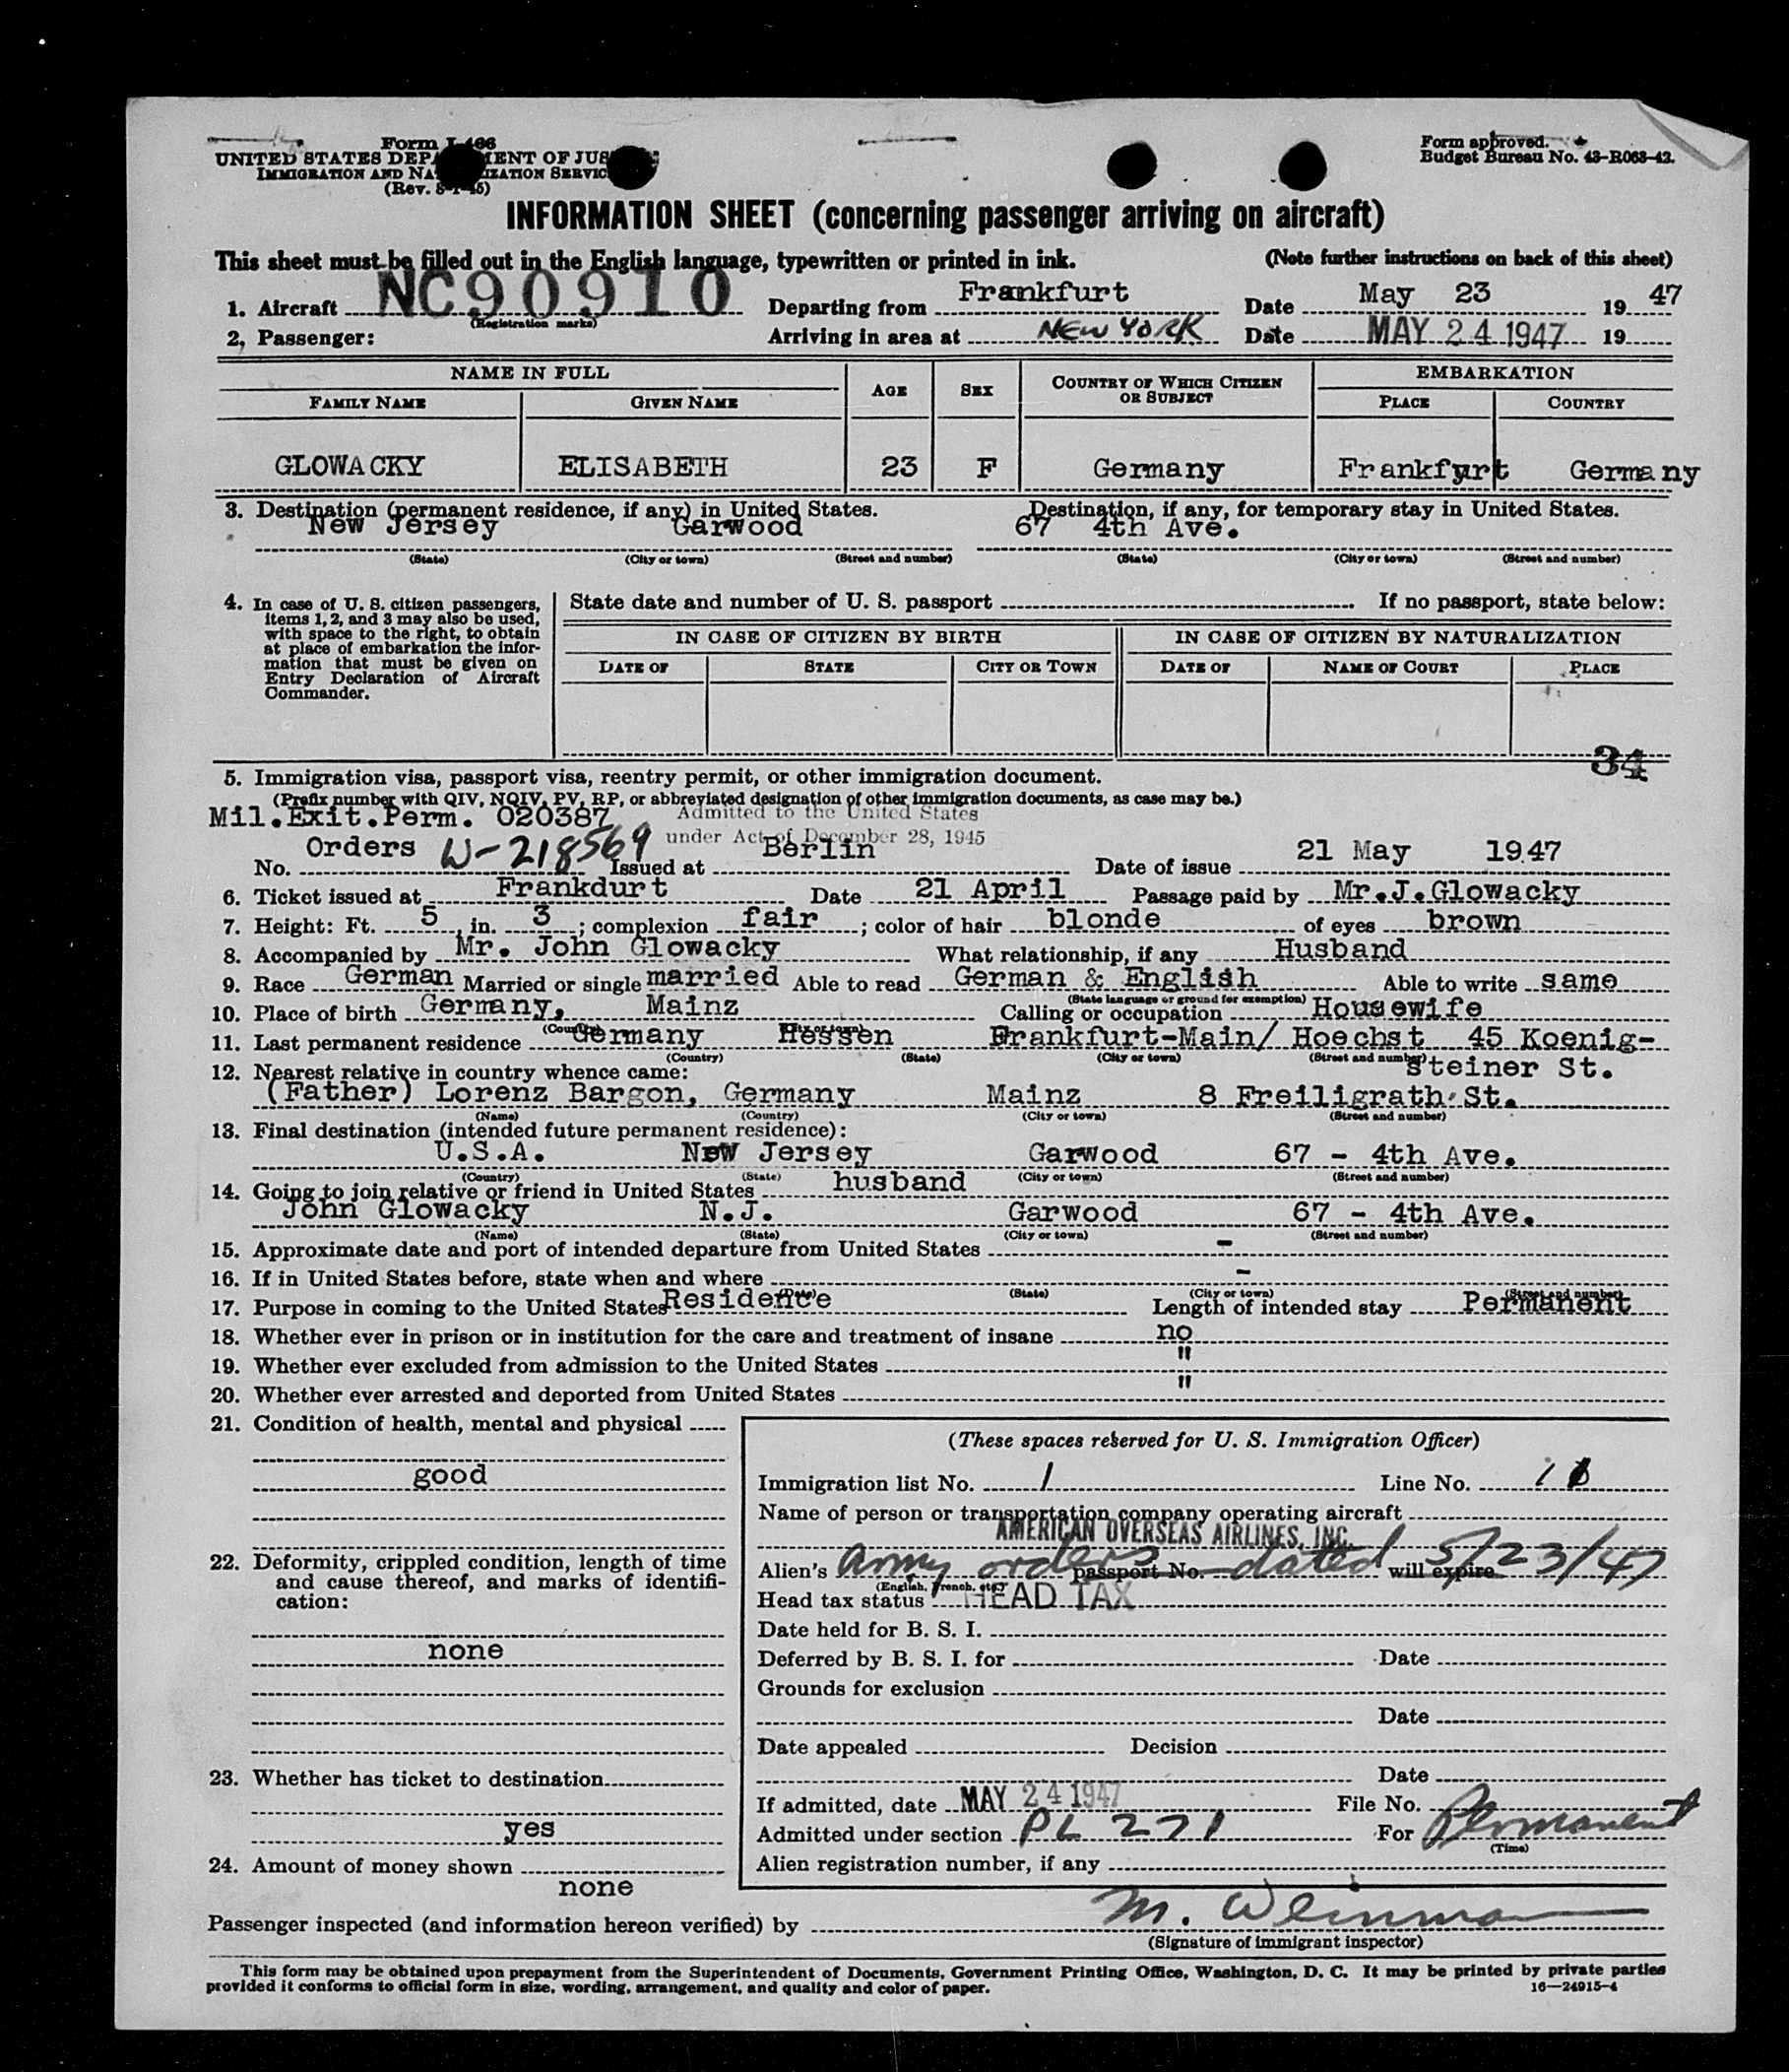 Form I-466
UNITED STATES DEPARTMENT OF JUSTICE
IMMIGRATION AND NATURALIZATION SERVICE
(Rev. 8-1-45)
Form approved.
Budget Bureau No. 43-R063-42.
INFORMATION SHEET (concerning passenger arriving on aircraft)
This sheet must be filled out in the English language, typewritten or printed in ink. (Note further instructions on back of this sheet)
1. Aircraft NC90910 Departing from Frankfurt Date May 23 19 47
(Registration marks)
2. Passenger: Arriving in area at NEW YORK Date MAY 24 1947 19
NAME IN FULL AGE SEX COUNTRY OF WHICH CITIZEN OR SUBJECT EMBARKATION
FAMILY NAME GIVEN NAME PLACE COUNTRY
GLOWACKY ELISABETH 23 F Germany Frankfurt Germany
3. Destination (permanent residence, if any) in United States. Destination, if any, for temporary stay in United States.
New Jersey Garwood 67 4th Ave.
(State) (City or town) (Street and number) (State) (City or town) (Street and number)
4. In case of U. S. citizen passengers,
items 1, 2, and 3 may also be used,
with space to the right, to obtain
at place of embarkation the infor-
mation that must be given on
Entry Declaration of Aircraft
Commander.
State date and number of U. S. passport If no passport, state below:
IN CASE OF CITIZEN BY BIRTH IN CASE OF CITIZEN BY NATURALIZATION
DATE OF STATE CITY OR TOWN DATE OF NAME OF COURT PLACE
34
5. Immigration visa, passport visa, reentry permit, or other immigration document.
(Prefix number with QIV, NQIV, PV, RP, or abbreviated designation of other immigration documents, as case may be.)
Mil.Exit.Perm. 020387 Admitted to the United States
under Act of December 28, 1945
Orders W-218569 Berlin 21 May 1947
No. Issued at Date of issue
6. Ticket issued at Frankdurt Date 21 April Passage paid by Mr.J.Glowacky
7. Height: Ft. 5 in. 3 ; complexion fair ; color of hair blonde of eyes brown
8. Accompanied by Mr. John Glowacky What relationship, if any Husband
9. Race German Married or single married Able to read German & English Able to write same
(State language or ground for exemption)
10. Place of birth Germany, Mainz Calling or occupation Housewife
(Country) (City or town)
11. Last permanent residence Germany Hessen Frankfurt-Main/ Hoechst 45 Koenig-
(Country) (State) (City or town) (Street and number)
steiner St.
12. Nearest relative in country whence came:
(Father) Lorenz Bargon, Germany Mainz 8 Freiligrath St.
(Name) (Country) (City or town) (Street and number)
13. Final destination (intended future permanent residence):
U.S.A. New Jersey Garwood 67 - 4th Ave.
(Country) (State) (City or town) (Street and number)
14. Going to join relative or friend in United States husband
John Glowacky N.J. Garwood 67 - 4th Ave.
(Name) (State) (City or town) (Street and number)
15. Approximate date and port of intended departure from United States -
16. If in United States before, state when and where -
(Date) (State) (City or town) (Street and number)
17. Purpose in coming to the United States Residence Length of intended stay Permanent
18. Whether ever in prison or in institution for the care and treatment of insane no
19. Whether ever excluded from admission to the United States "
20. Whether ever arrested and deported from United States "
21. Condition of health, mental and physical
good
22. Deformity, crippled condition, length of time
and cause thereof, and marks of identifi-
cation:
none
23. Whether has ticket to destination
yes
24. Amount of money shown
none
(These spaces reserved for U. S. Immigration Officer)
Immigration list No. 1 Line No.
Name of person or transportation company operating aircraft
AMERICAN OVERSEAS AIRLINES, INC.
Alien's Army orders passport No. dated will expire 5/23/47
(English, French, etc.)
Head tax status HEAD TAX
Date held for B. S. I.
Deferred by B. S. I. for Date
Grounds for exclusion
Date
Date appealed Decision
Date
If admitted, date MAY 24 1947 File No.
Admitted under section PL 271 For Permanent
(Time)
Alien registration number, if any
Passenger inspected (and information hereon verified) by M. Weinman
(Signature of immigrant inspector)
This form may be obtained upon prepayment from the Superintendent of Documents, Government Printing Office, Washington, D. C. It may be printed by private parties
provided it conforms to official form in size, wording, arrangement, and quality and color of paper. 16—24915-4